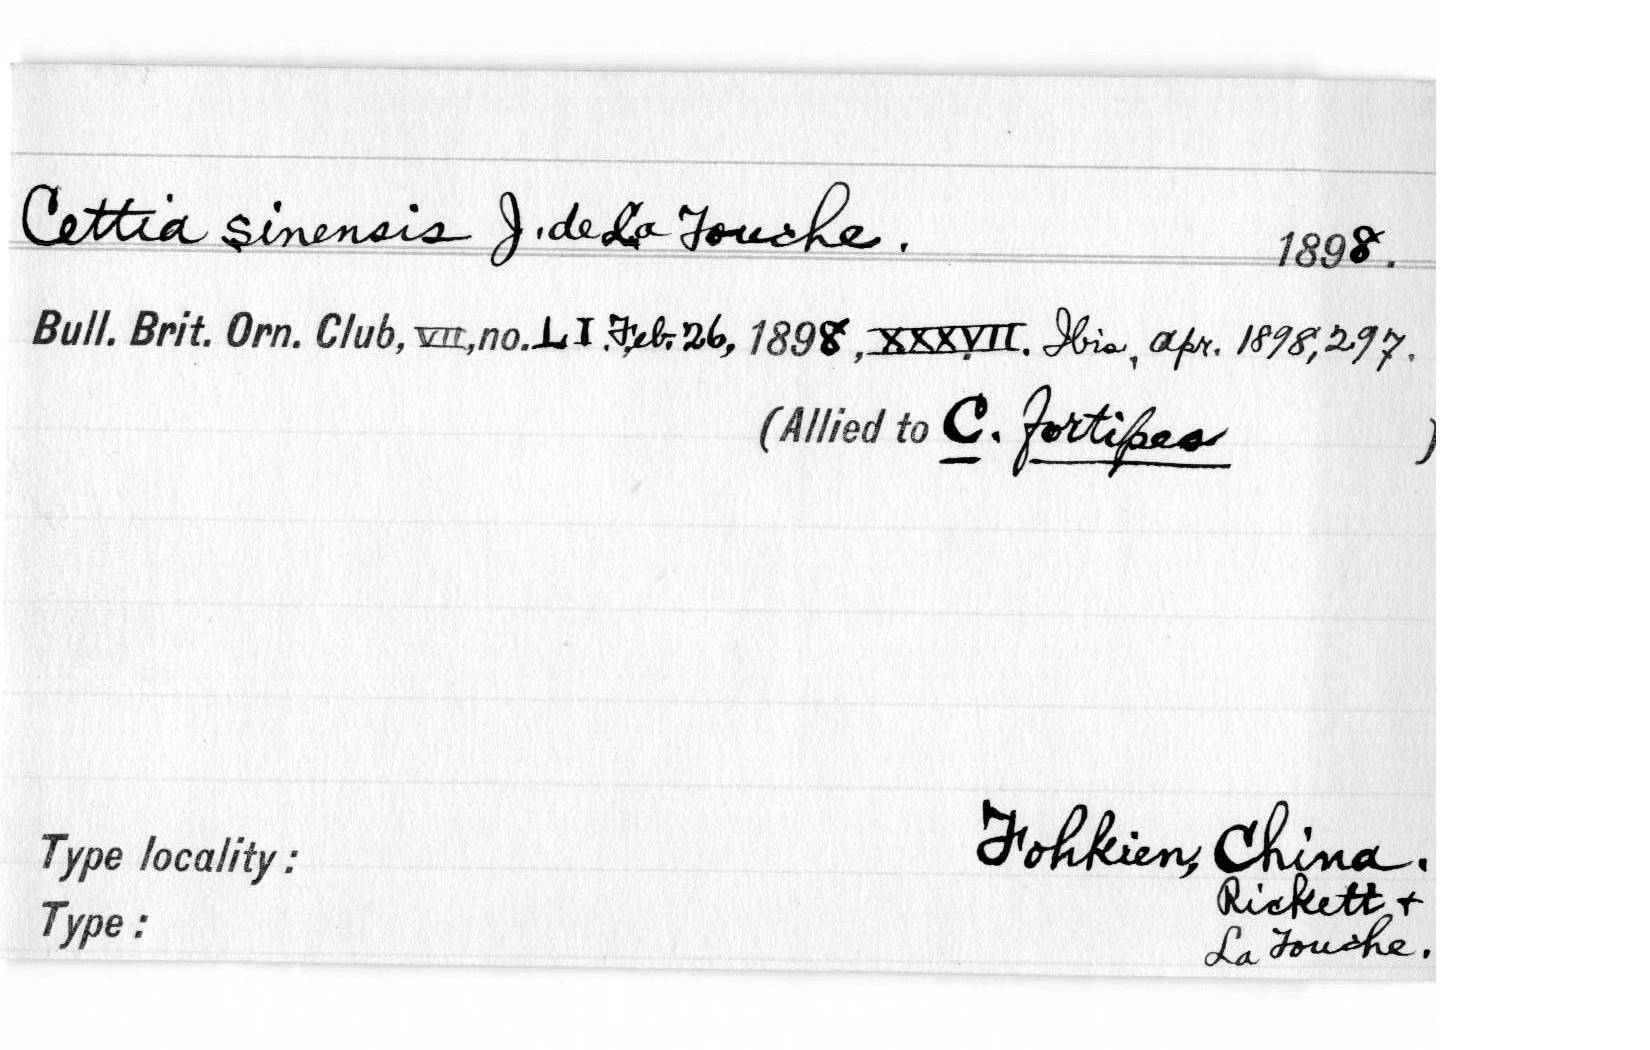 Cettia sinensis J. de La Touche. 1898.
Bull. Brit. Orn. Club, VII, no. LI. Feb. 26, 1898, XXXVII. Ibis, Apr. 1898, 297.
(Allied to C. fortipes )
Type locality: Fohkien, China.
Rickett +
Type: La Touche.